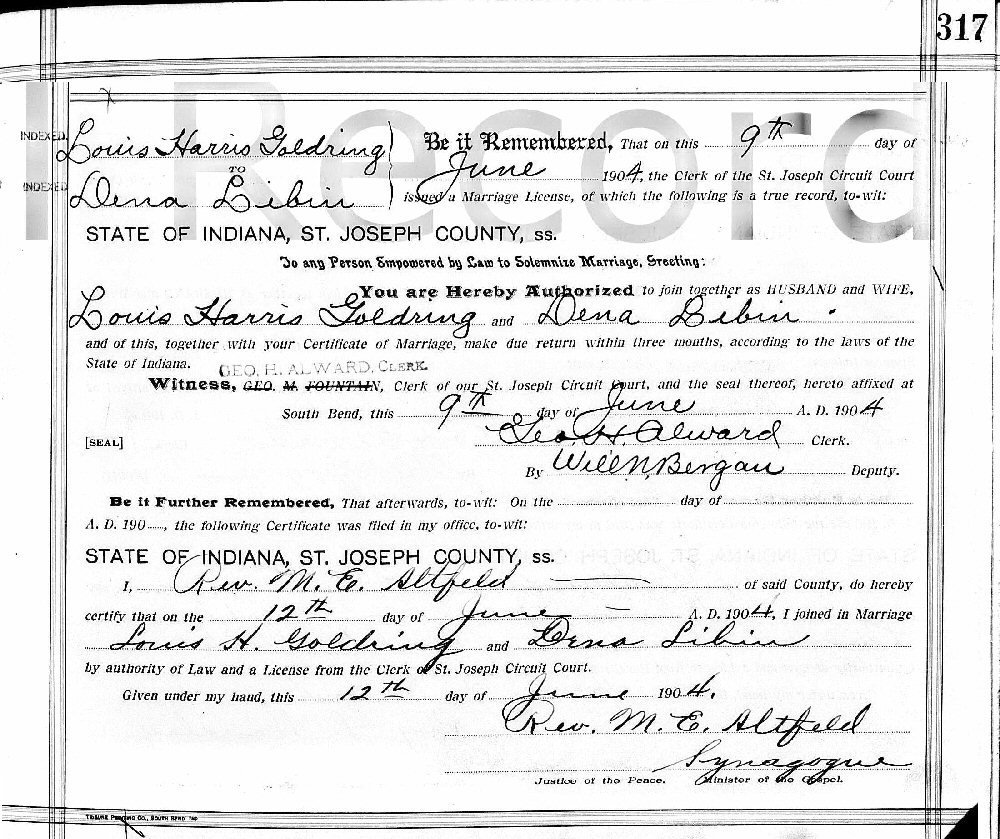 317
Record
INDEXED. Louis Harris Goldring
TO
INDEXED Dena Libin
Be it Remembered, That on this 9th day of
June 1904, the Clerk of the St. Joseph Circuit Court
issued a Marriage License, of which the following is a true record, to-wit:
STATE OF INDIANA, ST. JOSEPH COUNTY, ss.
To any Person Empowered by Law to Solemnize Marriage, Greeting:
You are Hereby Authorized to join together as HUSBAND and WIFE,
Louis Harris Goldring and Dena Libin.
and of this, together with your Certificate of Marriage, make due return within three months, according to the laws of the
State of Indiana. GEO. H. ALWARD, CLERK.
Witness, GEO. M. FOUNTAIN, Clerk of our St. Joseph Circuit Court, and the seal thereof, hereto affixed at
South Bend, this 9th day of June A. D. 1904
[SEAL] Geo. H. Alward Clerk.
By Will N. Bergan Deputy.
Be it Further Remembered, That afterwards, to-wit: On the day of
A. D. 190, the following Certificate was filed in my office, to-wit:
STATE OF INDIANA, ST. JOSEPH COUNTY, ss.
I, Rev. M. E. Altfeld of said County, do hereby
certify that on the 12th day of June A. D. 1904, I joined in Marriage
Louis H. Goldring and Dena Libin
by authority of Law and a License from the Clerk of St. Joseph Circuit Court.
Given under my hand, this 12th day of June 1904.
Rev. M. E. Altfeld
Synagogue
Justice of the Peace. Minister of the Gospel.
TRIBUNE PRINTING CO., SOUTH BEND IND